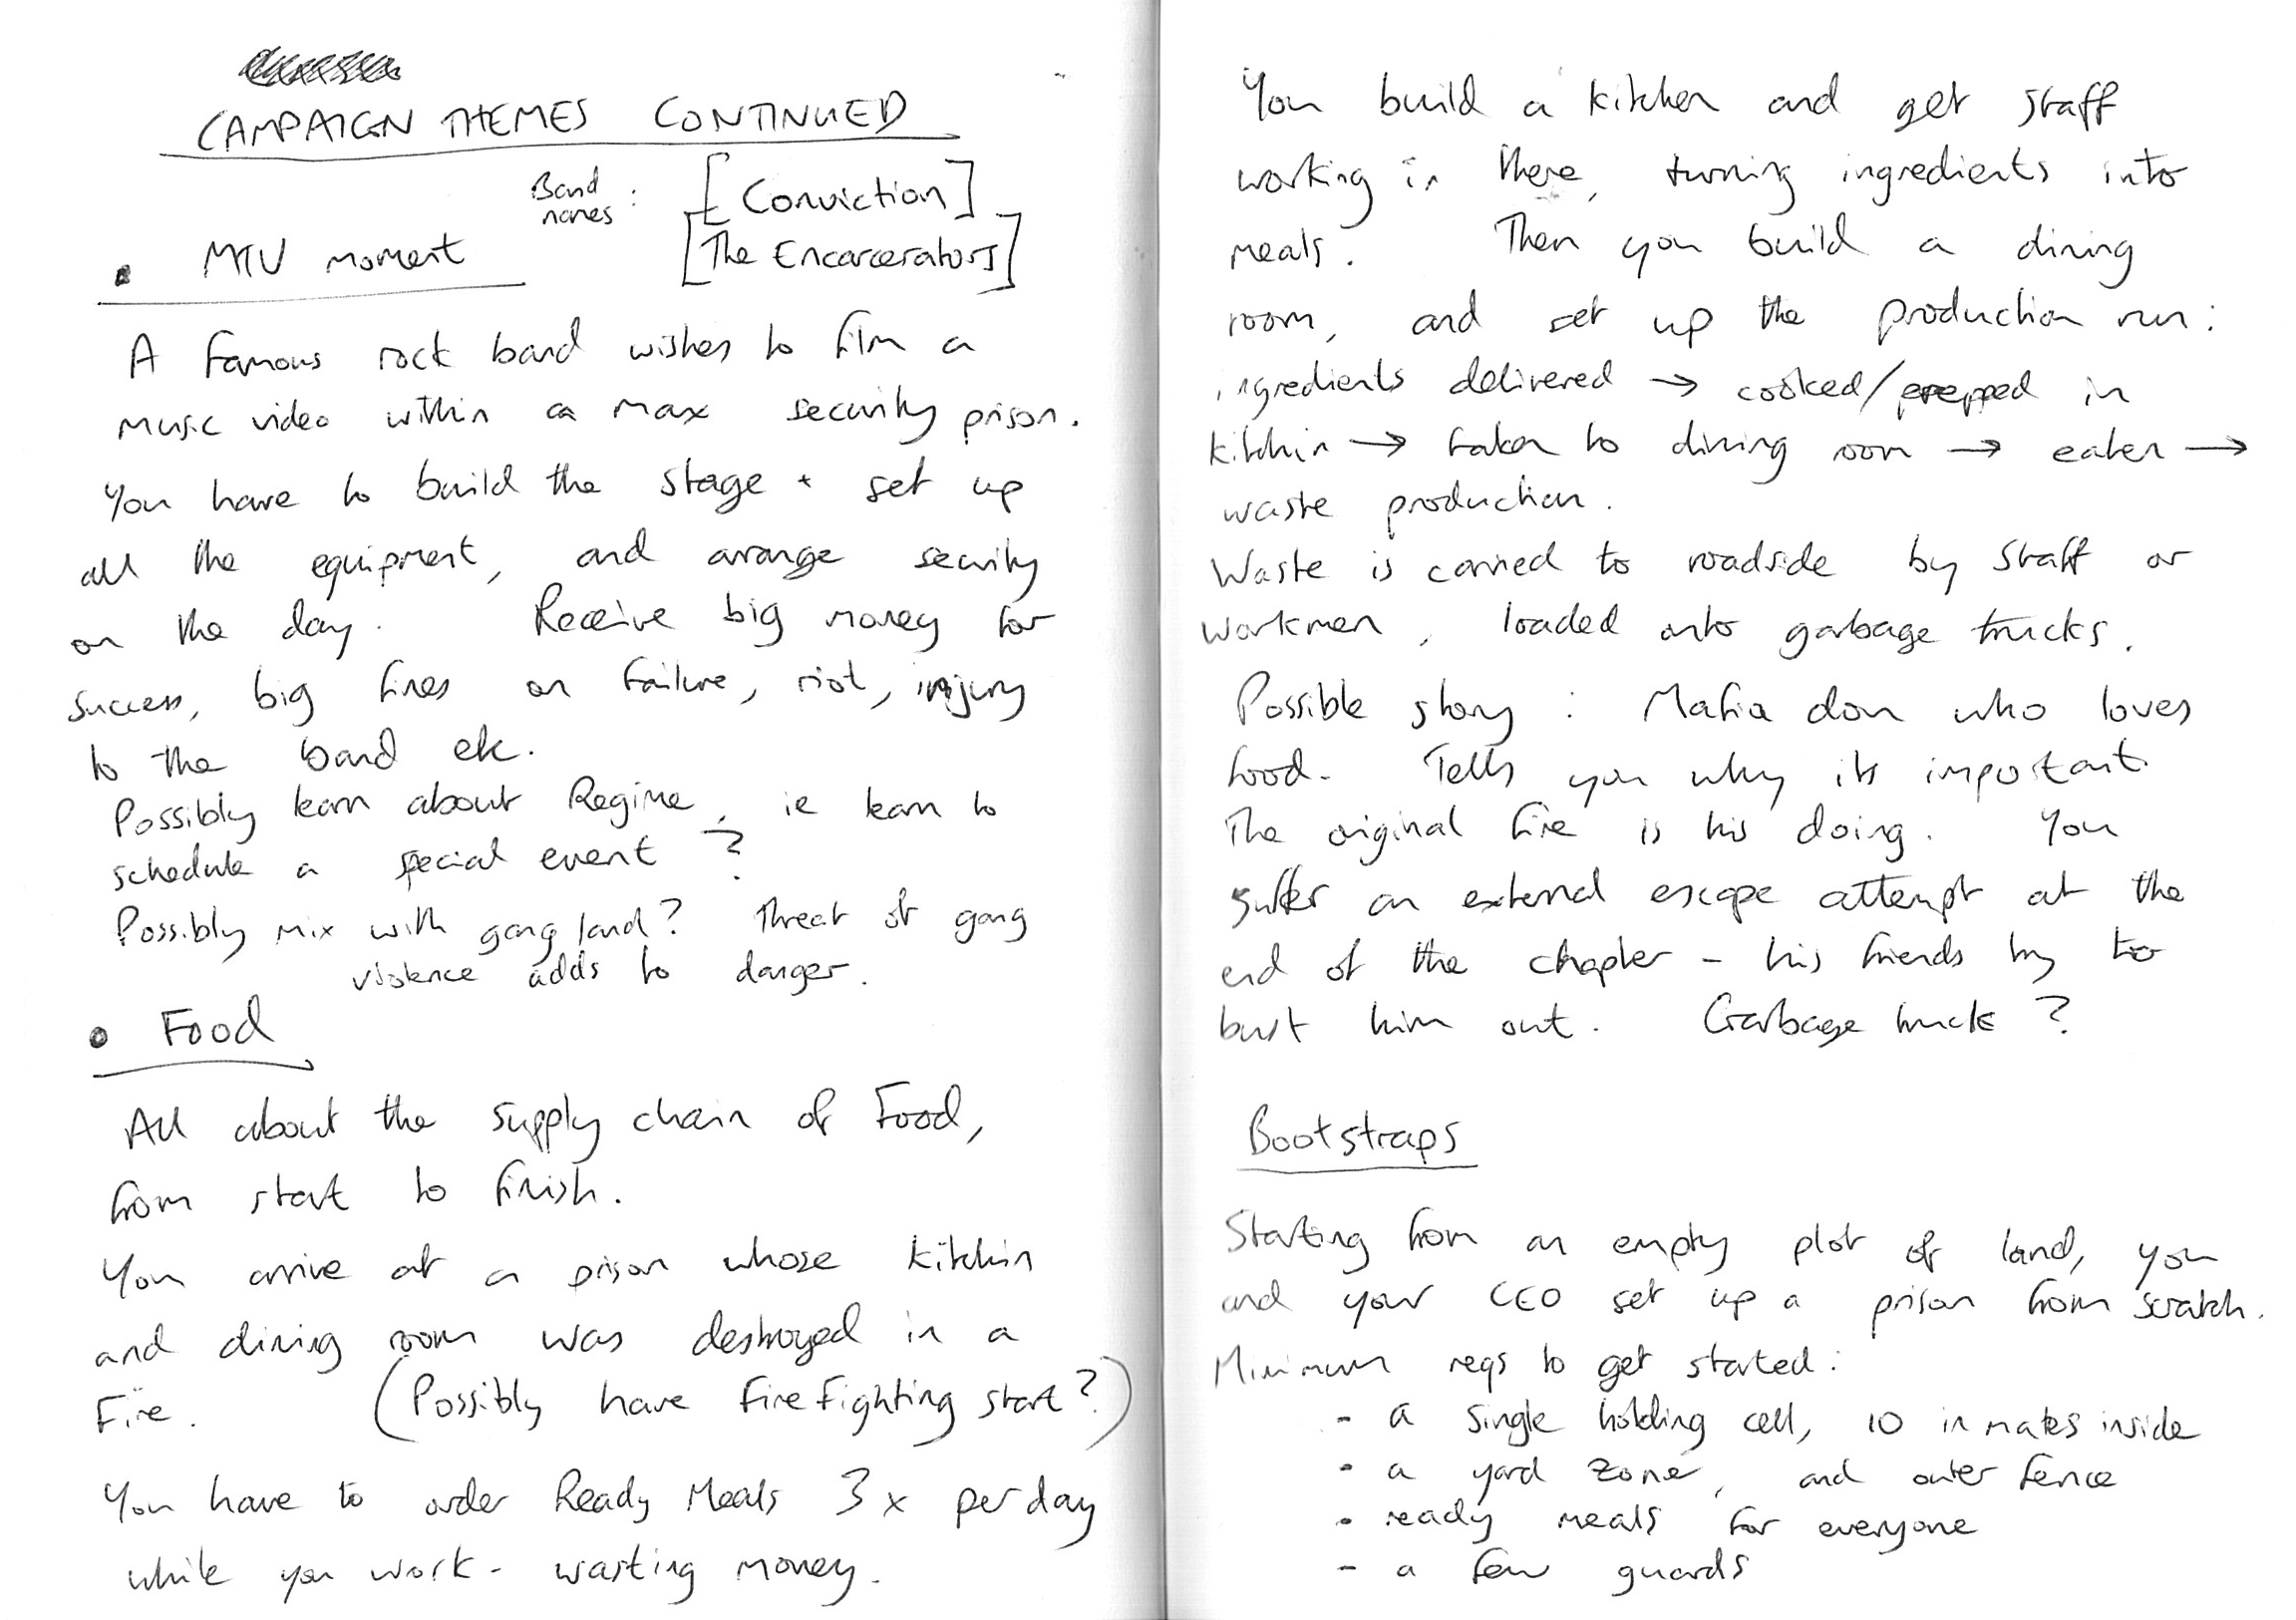 CAMPAIGN THEMES CONTINUED
Band names: [Conviction]
[The Encarcerators]
• MTV moment
A famous rock band wishes to film a
music video within a max security prison.
You have to build the stage + set up
all the equipment, and arrange security
on the day. Receive big money for
success, big fines on failure, riot, injury
to the band etc.
Possibly learn about Regime, ie learn to
schedule a special event?
Possibly mix with gang land? Threat of gang
violence adds to danger.
• Food
All about the supply chain of Food,
from start to finish.
You arrive at a prison whose kitchin
and dining room was destroyed in a
Fire. (Possibly have Fire Fighting start?)
You have to order Ready Meals 3x per day
while you work - wasting money.
You build a kitchen and get staff
working in there, turning ingredients into
meals. Then you build a dining
room, and set up the production run:
ingredients delivered → cooked/prepped in
kitchin → taken to dining room → eaten →
waste production.
Waste is carried to roadside by staff or
workmen, loaded onto garbage trucks.
Possible story: Mafia don who loves
food. Tells you why its important
The original fire is his doing. You
suffer an external escape attempt at the
end of the chapter - his friends try to
bust him out. Garbage truck?
Bootstraps
Starting from an empty plot of land, you
and your CEO set up a prison from scratch.
Minimum reqs to get started:
- a single holding cell, 10 inmates inside
- a yard zone, and outer fence
- ready meals for everyone
- a few guards